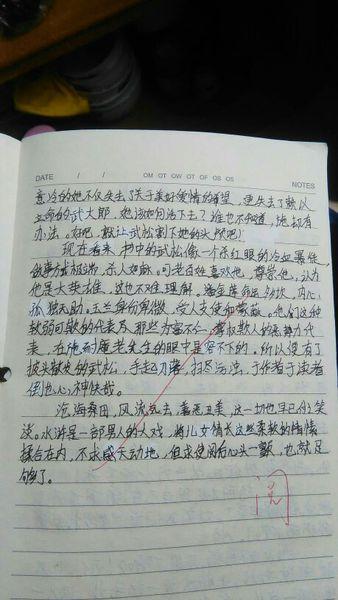 DATE / / OM OT OW OT OF OS OS
NOTES
意冷的她不仅失去了关于美好爱情的希望,更失去了赖以
立命的武大郎,她该如何活下去?谁也不知道,施却有
办法。好吧,就让武松割下她的头颅吧!
现在看来,书中的武松像一个杀红眼的冷血暴徒,
做事情极端,杀人如麻。可老百姓喜欢他,尊崇他,认为
他是大英雄,这也不难理解。潘金莲命运多坎,内心
孤独无助,玉兰身份卑微,受人支使和蒙蔽,他们这种
软弱可欺的代表及那些为富不仁、専权欺人的恶势力代
表,在施耐庵老先生的眼中是容不下的。所以便有了
披头散发的武松,手起刀落,扫尽污浊,于作者于读者
倒也心神快哉。
沧海桑田,风流云去,善恶丑美,这一切也早已付笑
谈。水浒是一部男人的大戏,将儿女情长这些柔软的情愫
揉合在内,不求感天动地,但求使阅者心头一颤,也就足
够了。
阅